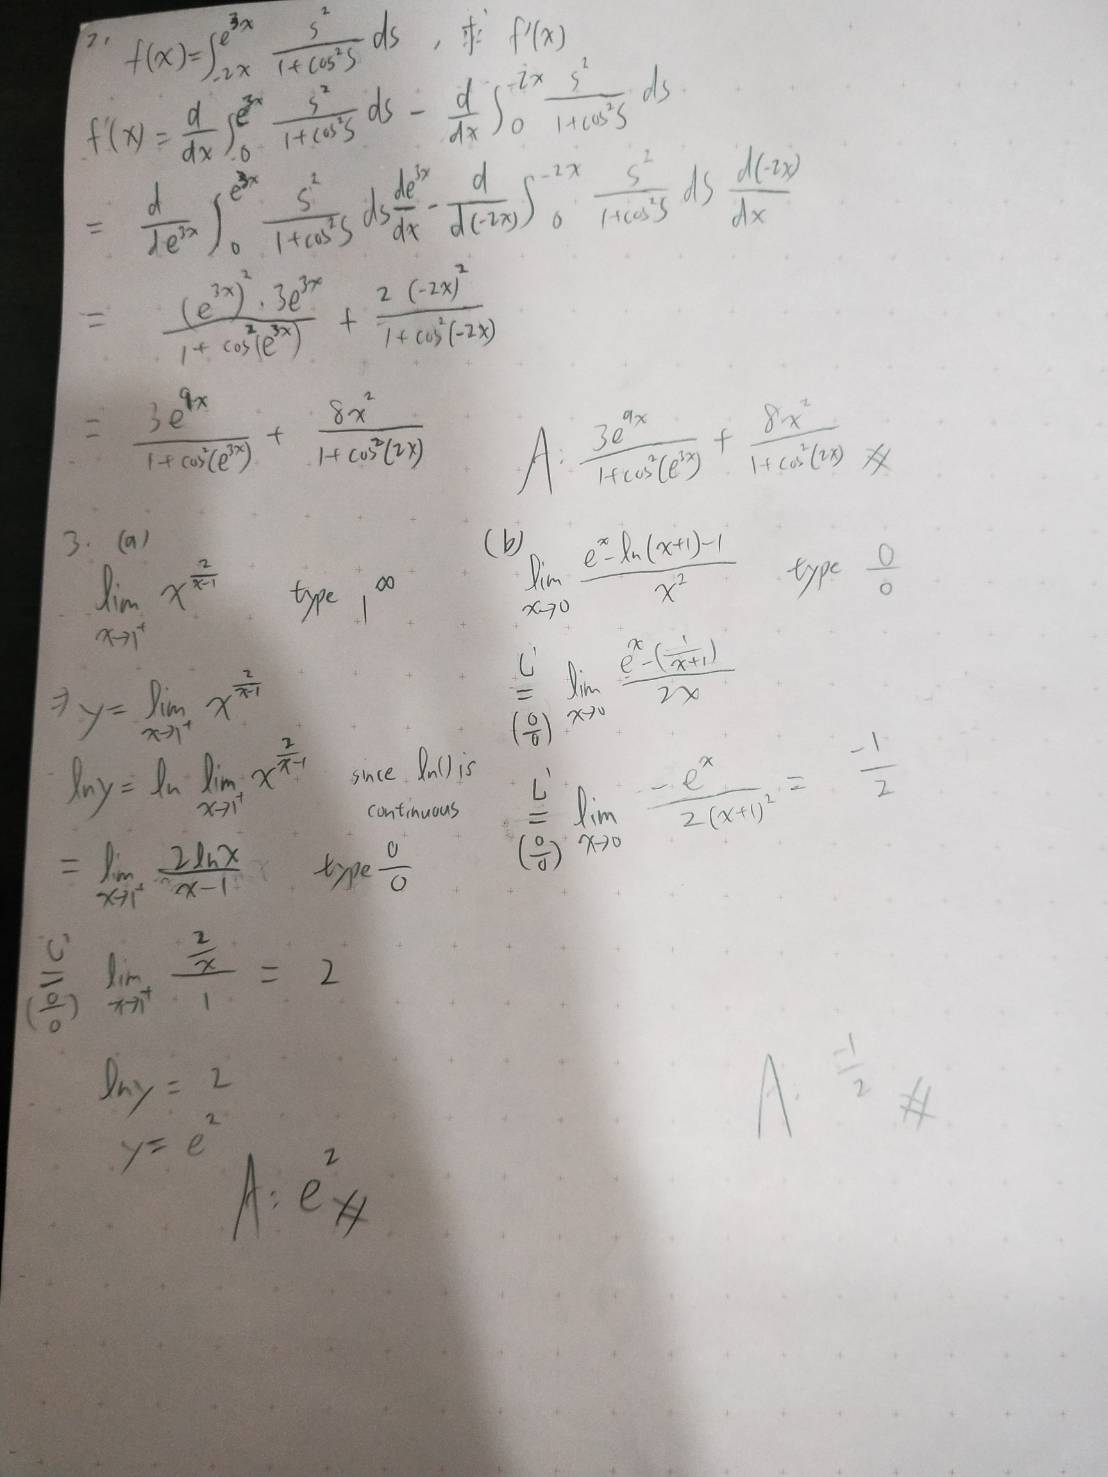 2. f(x) = ∫_{-2x}^{e^{3x}} \frac{s^2}{1+cos^2 s} ds , 求 f'(x)
f'(x) = \frac{d}{dx} ∫_0^{e^{3x}} \frac{s^2}{1+cos^2 s} ds - \frac{d}{dx} ∫_0^{-2x} \frac{s^2}{1+cos^2 s} ds
= \frac{d}{de^{3x}} ∫_0^{e^{3x}} \frac{s^2}{1+cos^2 s} ds \frac{de^{3x}}{dx} - \frac{d}{d(-2x)} ∫_0^{-2x} \frac{s^2}{1+cos^2 s} ds \frac{d(-2x)}{dx}
= \frac{(e^{3x})^2 · 3e^{3x}}{1+cos^2(e^{3x})} + \frac{2(-2x)^2}{1+cos^2(-2x)}
= \frac{3e^{9x}}{1+cos^2(e^{3x})} + \frac{8x^2}{1+cos^2(2x)}
A: \frac{3e^{9x}}{1+cos^2(e^{3x})} + \frac{8x^2}{1+cos^2(2x)} #
3. (a)
lim_{x→1^+} x^{\frac{2}{x-1}} type 1^∞
⇒ y = lim_{x→1^+} x^{\frac{2}{x-1}}
ln y = ln lim_{x→1^+} x^{\frac{2}{x-1}} since ln() is
continuous
= lim_{x→1^+} \frac{2 ln x}{x-1} type \frac{0}{0}
\overset{L'}{\underset{(\frac{0}{0})}{=}} lim_{x→1^+} \frac{\frac{2}{x}}{1} = 2
ln y = 2
y = e^2
A: e^2 #
(b)
lim_{x→0} \frac{e^x - ln(x+1) - 1}{x^2} type \frac{0}{0}
\overset{L'}{\underset{(\frac{0}{0})}{=}} lim_{x→0} \frac{e^x - (\frac{1}{x+1})}{2x}
\overset{L'}{\underset{(\frac{0}{0})}{=}} lim_{x→0} \frac{-e^x}{2(x+1)^2} = \frac{-1}{2}
A: \frac{-1}{2} #